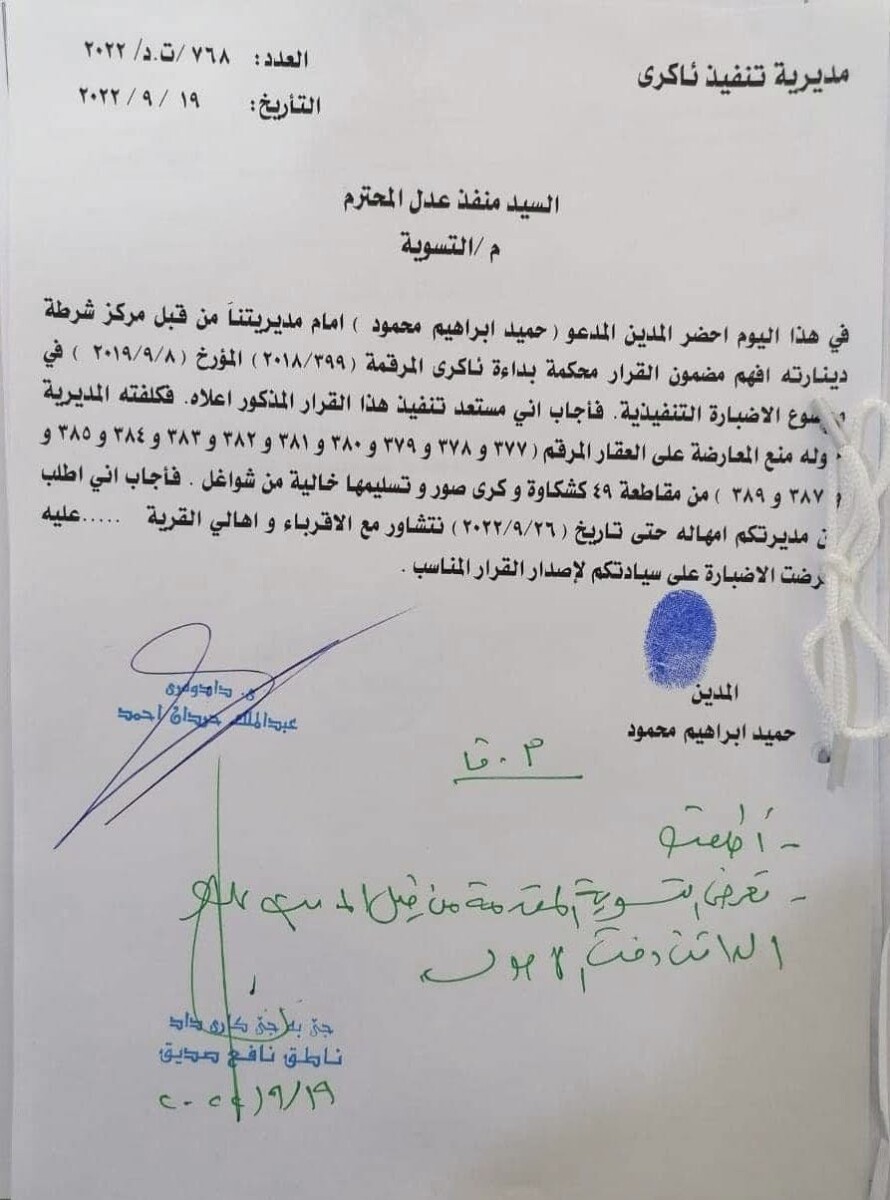 مديرية تنفيذ ئاكرى
العدد: ٧٦٨ /ت.د/ ٢٠٢٢
التأريخ: ١٩ / ٩ / ٢٠٢٢
السيد منفذ عدل المحترم
م /التسوية
في هذا اليوم احضر المدين المدعو ( حميد ابراهيم محمود ) امام مديريتنا من قبل مركز شرطة
دينارته افهم مضمون القرار محكمة بداءة ئاكرى المرقمة (٢٠١٨/٣٩٩) المؤرخ (٢٠١٩/٩/٨ ) في
الاضبارة التنفيذية. فأجاب اني مستعد تنفيذ هذا القرار المذكور اعلاه. فكلفته المديرية
وله منع المعارضة على العقار المرقم (٣٧٧ و ٣٧٨ و ٣٧٩ و ٣٨٠ و ٣٨١ و ٣٨٢ و ٣٨٣ و ٣٨٤ و ٣٨٥ و
و ٣٨٧ و ٣٨٩ ) من مقاطعة ٤٩ كشكاوة و كرى صور و تسليمها خالية من شواغل . فأجاب اني اطلب
مديرتكم امهاله حتى تاريخ (٢٠٢٢/٩/٢٦) نتشاور مع الاقرباء و اهالي القرية .....عليه
رضت الاضبارة على سيادتكم لإصدار القرار المناسب .
المدين
حميد ابراهيم محمود
ى. دادوەرى
عبدالملك احمد
م . قا
- أطلعت
- تعرض التسوية المقدمة من قبل المدين على
الدائن وفق الاصول
جێ بەجێ كارى داد
ناطق نافع صديق
١٩/٩/٢٠٢٢